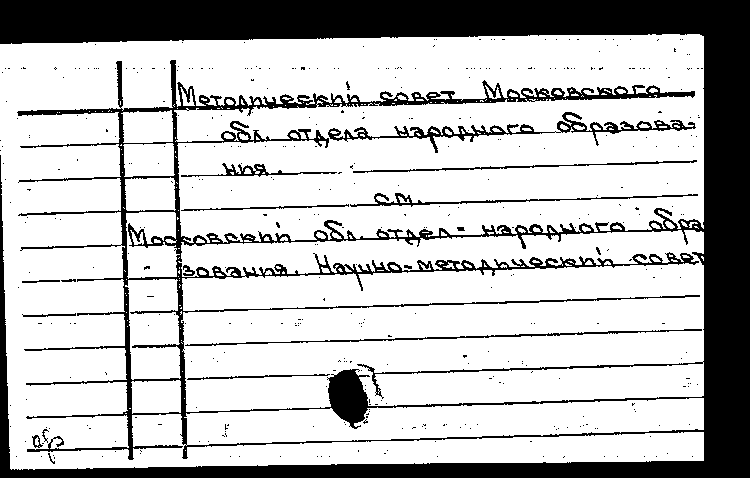 Методический совет Московского
обл. отдела народного образова-
ния.
см.
Московский обл. отдел народного обра
зования. Научно-методический совет